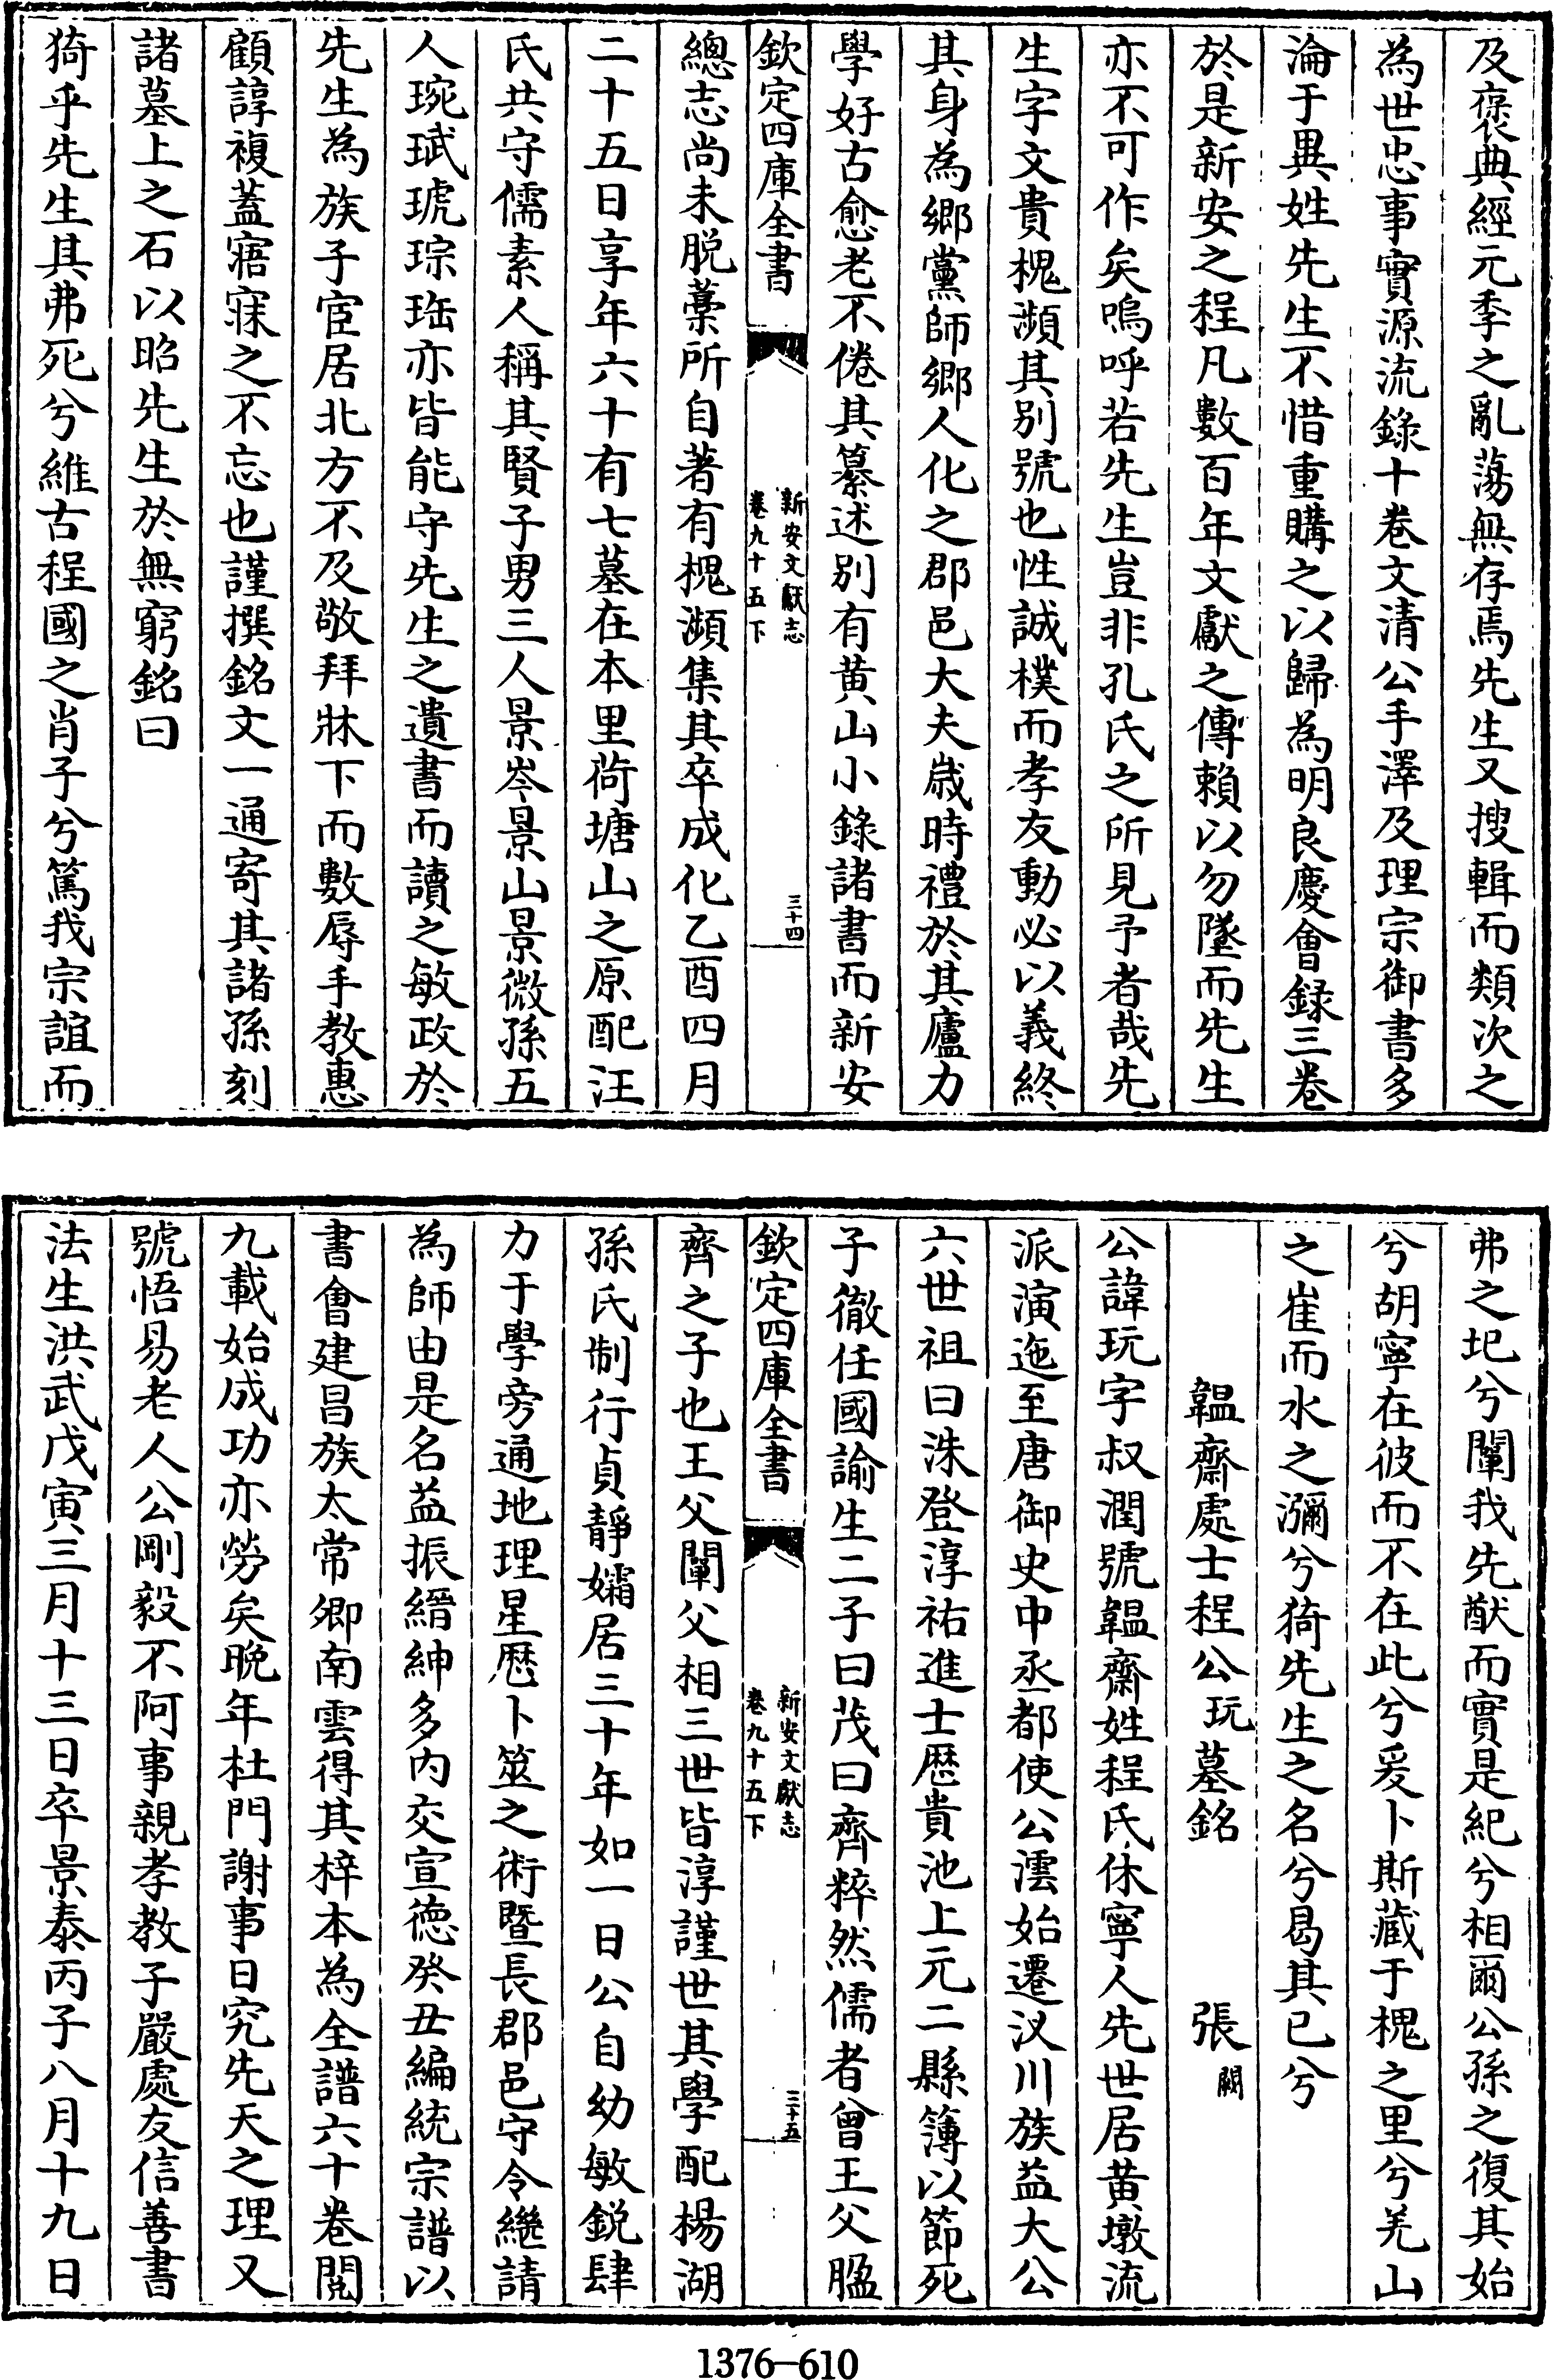 及褒典經元季之亂蕩無存焉先生又搜輯而類次之
為世忠事實源流錄十卷文清公手澤及理宗御書多
淪于異姓先生不惜重購之以歸為明良慶會録三卷
於是新安之程凡數百年文獻之傳賴以勿墜而先生
亦不可作矣嗚呼若先生豈非孔氏之所見予者哉先
生字文貴槐瀕其别號也性誠樸而孝友動必以義終
其身為鄉黨師鄉人化之郡邑大夫歲時禮於其廬力
學好古愈老不倦其纂述别有黄山小錄諸書而新安
欽定四庫全書
新安文獻志
卷九十五下
三十四
總志尚未脱藳所自著有槐瀕集其卒成化乙酉四月
二十五日享年六十有七墓在本里荷塘山之原配汪
氏共守儒素人稱其賢子男三人景岑景山景微孫五
人琬珷琥琮珤亦皆能守先生之遺書而讀之敏政於
先生為族子宦居北方不及敬拜牀下而數辱手教惠
顧諄複蓋寤寐之不忘也謹撰銘文一通寄其諸孫刻
諸墓上之石以昭先生於無窮銘曰
猗乎先生其弗死兮維古程國之肖子兮篤我宗誼而
弗之圮兮闡我先猷而實是紀兮相爾公孫之復其始
兮胡寧在彼而不在此兮爰卜斯藏于槐之里兮羌山
之崔而水之瀰兮猗先生之名兮曷其已兮
韞齋處士程公玩墓銘 張闕
公諱玩字叔潤號韞齋姓程氏休寧人先世居黄墩流
派演迤至唐御史中丞都使公澐始遷汊川族益大公
六世祖曰洙登淳祐進士歴貴池上元二縣簿以節死
子徹任國諭生二子曰茂曰齊粹然儒者曾王父賜
欽定四庫全書
新安文獻志
卷九十五下
三十五
齊之子也王父闡父相三世皆淳謹世其學配楊湖
孫氏制行貞靜孀居三十年如一日公自幼敏鋭肆
力于學旁通地理星厯卜筮之術暨長郡邑守令繼請
為師由是名益振縉紳多内交宣徳癸丑編統宗譜以
書會建昌族太常卿南雲得其梓本為全譜六十卷閲
九載始成功亦勞矣晚年杜門謝事日究先天之理又
號悟易老人公剛毅不阿事親孝教子嚴處友信善書
法生洪武戊寅三月十三日卒景泰丙子八月十九日
1376—610